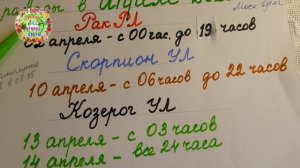 в Апреле
Рак РЛ
апреля - с 00 час. до 19 часов
Скорпион УЛ
10 апреля - с 06 часов до 22 часов
Козерог УЛ
13 апреля - с 03 часов
14 апреля - все 24 часа